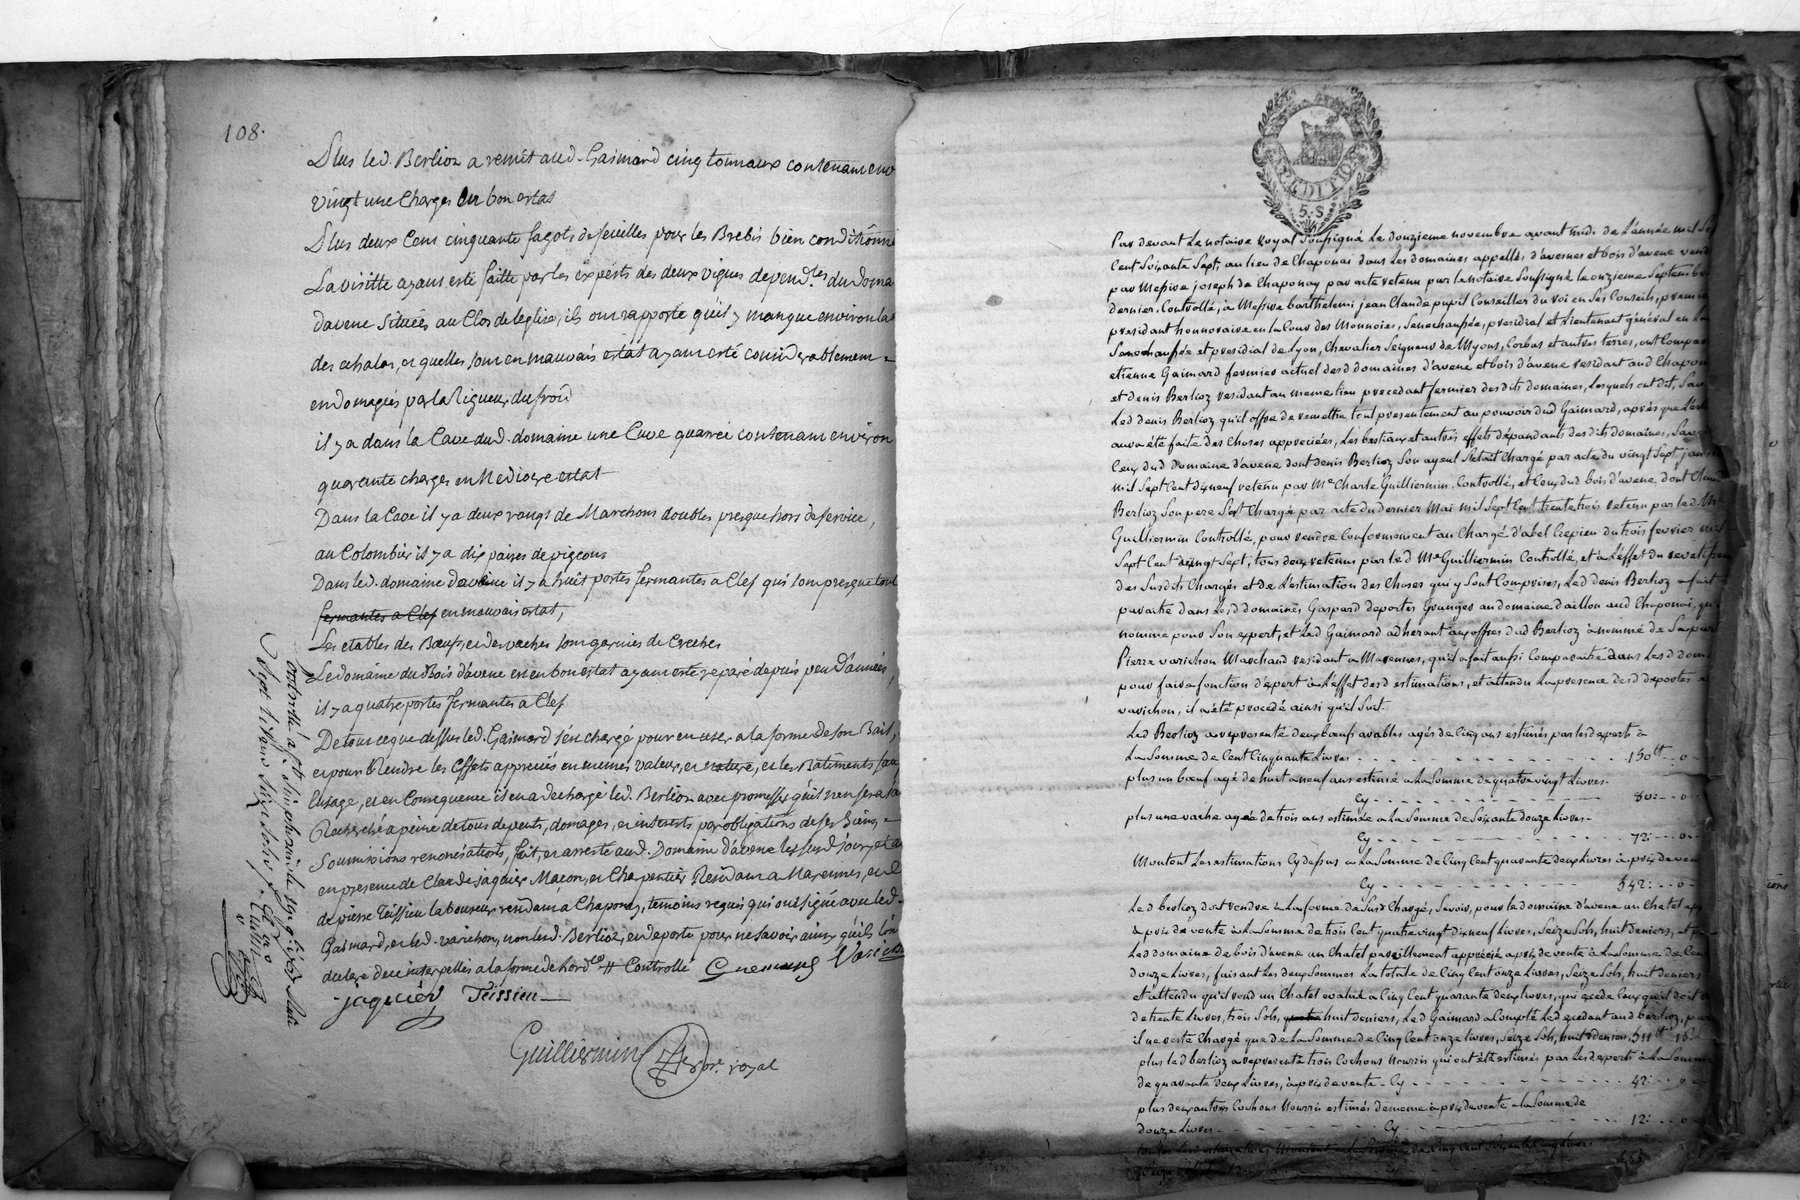 108.
Plus led. Berlion a remit aud. Gaimard cinq tonnaux contenant env
vingt une Charges en bon estat
Plus deux Cent cinquante fagots de feuilles pour les Brebis bien conditionné
La visitte ayant esté faitte par les experts des deux vignes depend.tes du doma
davene Situées au Clos de leglise, ils ont rapporté qu'il y manque environ
des echalas, et quelles sont en mauvais estat ayant esté considerablement
endomagées par la Rigueur du froid
il y a dans la Cave dud. domaine une Cuve quarrée contenant environ
quarante charges en Mediocre estat
Dans la Cave il y a deux rangs de Marchons doubles presque hors de service,
au Colombier il y a dix paires de pigeons
Dans led. domaine davene il y a huit portes fermantes a Clef qui sont presque tout
fermantes a Clef en mauvais estat,
Les etables des Bœufs et des vaches sont garnies de Creches
Le domaine du Bois d'avene est en bon estat ayant esté reparé depuis peu d'années,
il y a quatre portes fermantes a Clef
De tout ce que dessus led. Gaimard s'en chargé pour en user a la forme de son Bail,
et pour Rendre les Effets appreciés en memes valeur, et nature, et les Batiments
Lusage, et en Consequence il en a dechargé led. Berlion avec promesse qu'il n'en sera
Recherché a peine de tous depents, domages, et interests par obligations de ses biens,
Soumissions renonciations, fait, et arresté aud. Domaine d'avene les susd. jour, et an
en presence de Claude jaquier Macon, et Charpentier Residant a Marennes, et de
de pierre Teissieu laboureur residant a Chaponay, temoins requis qui ont signé avec led.
Gaimard, et led. varichon, non led. Berlioz, et deporte pour ne savoir ainsi qu'ils l'on
declaré de ce interpellés a la forme de l'ord.ce Controllé Guemard Varichon
jaquier Teissieu
Guilliermin No.re royal
Controllé a St. Sinphorin le 19 9.bre 1767
Sept livres dix sols
EXPEDITION
5. S.
Par devant Le notaire royal Soussigné Le douzieme novembre avant midi de L'année mil Sept
Cent Soixante Sept, au lieu de Chaponai dans Les domaines appellés d'avesnes et bois d'avene vend
par Messire joseph de Chaponay par acte retenu par le notaire Soussigné le onzieme Septembre
dernier, Controllé, à Messire barthelemi jean Claude pupil Conseiller du roi en Ses Conseils, premier
president honnoraire en la Cour des Monnoies, Senechaussée, presidial et Lieutenant général en La
Senechaussée et presidial de Lyon, Chevalier Seigneur de Myons, Corbas et autres terres, ont Comparu
etienne Gaimard fermier actuel desd domaines d'avene et bois d'avene residant aud Chaponay
et denis Berlioz residant au meme lieu precedant fermier desdits domaines, Lesquels ont dit, Savoir
Led denis Berlioz qu'il offre de remettre tout presentement au pouvoir dud Gaimard, après que L'esti
aura été faite des Choses appreciées, Les bestiaux et autres effets dépendants desdits domaines, Savoir
Ceux dud domaine d'avene dont denis Berlioz Son ayeul S'etait Chargé par acte du vingt Sept janvier
mil Sept Cent dixneuf retenu par Me Charle Guilliermin, Controllé, et Ceux dud bois d'avene, dont Claude
Berlioz Son pere S'est Chargé par acte du dernier Mai mil Sept Cent trente trois retenu par led. Me
Guilliermin Controllé, pour rendre Conformement au Chargé d'abel Crepieu du trois fevrier mil
Sept Cent vingt Sept, tous deux retenus par led Me Guilliermin Controllé, et à L'effet du
des Susdits Chargés et de L'estimation des Choses qui y Sont Comprises, Led denis Berlioz a fait
paraitre dans Lesd domaines Gaspard deportes Granger au domaine d'aillon aud Chaponai, qu'il
nomme pour Son expert, et Led Gaimard adherant aux offres dud Berlioz à nommé de Sa part
Pierre varichon Marchand residant a Marennes, qu'il a fait aussi Comparaitre dans Lesd domaines
pour faire fonction d'expert à L'effet desd estimations, et attendu La presence desd deportes et
varichon, il a été procedé ainsi qu'il Suit.
Led Berlioz a representé deux bœufs arables agés de Cinq ans estimés par lesd experts à
La Somme de Cent Cinquante Livres 150tt o
plus un bœuf agé de huit a neuf ans estimé a La Somme de quatre vingt Livres
Cy 80: o
plus une vache agée de trois ans estimée a La Somme de Soixante douze Livres
Cy 72: o
Montent Les estimations Cy dessus a La Somme de Cinq Cent quarante deux Livres à prix de vente
Cy 542: o
Led berlioz doit rendre à La forme de Susd Chargés, Savoir, pour le domaine d'avene un Chatel
a prix de vente à La Somme de trois Cent quatre vingt dix neuf Livres, Seize Sols, huit deniers, et pour
Led domaine de bois d'avene un Chatel pareillement apprécié a prix de vente à La Somme de Cent
douze Livres, faisant Les deux Sommes La totale de Cinq Cent onze Livres, Seize Sols, huit deniers
et attendu qu'il rend un Chatel evalué a Cinq Cent quarante deux livres, qui excede Ceux qu'il doit
de trente Livres, trois Sols, quatre huit deniers, Led Gaimard a Compté Led excedant aud berlioz, par
il ne reste Chargé que de La Somme de Cinq Cent onze livres, Seize Sols, huit deniers, 511tt 16
plus led berlioz a representé trois Cochons Nourris qui ont été estimés par Lesd experts à La Somme
de quarante deux Livres, à prix de vente Cy 42: o
plus deux autres Cochons Nourris estimés de meme à prix de vente a La Somme de
douze Livres Cy 12: o